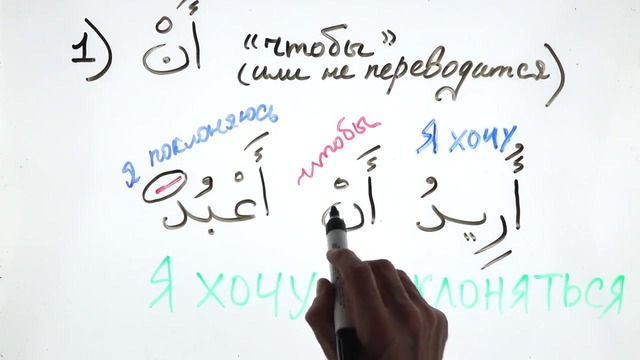 1) أَنْ "чтобы"
(или не переводится)
я поклоняюсь чтобы Я хочу
أُرِيدُ أَنْ أَعْبُدَ
Я ХОЧУ КЛОНЯТЬСЯ